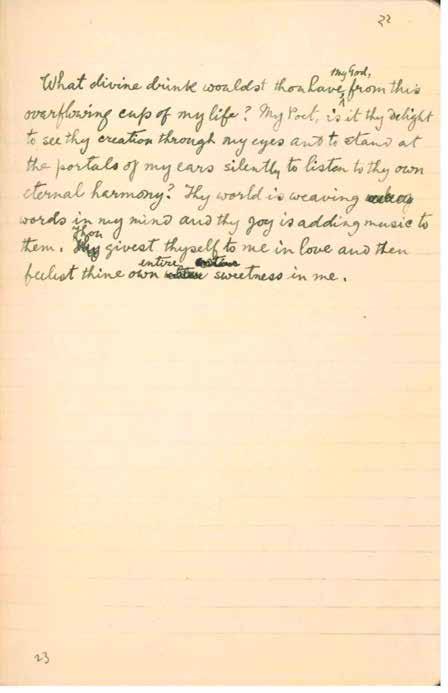 ২২
What divine drink wouldst thou have, my God, from this
overflowing cup of my life? My Poet, is it thy delight
to see thy creation through my eyes and to stand at
the portals of my ears silently to listen to thy own
eternal harmony? Thy world is weaving
words in my mind and thy joy is adding music to
them. Thou givest thyself to me in love and then
feelest thine own entire sweetness in me.
23